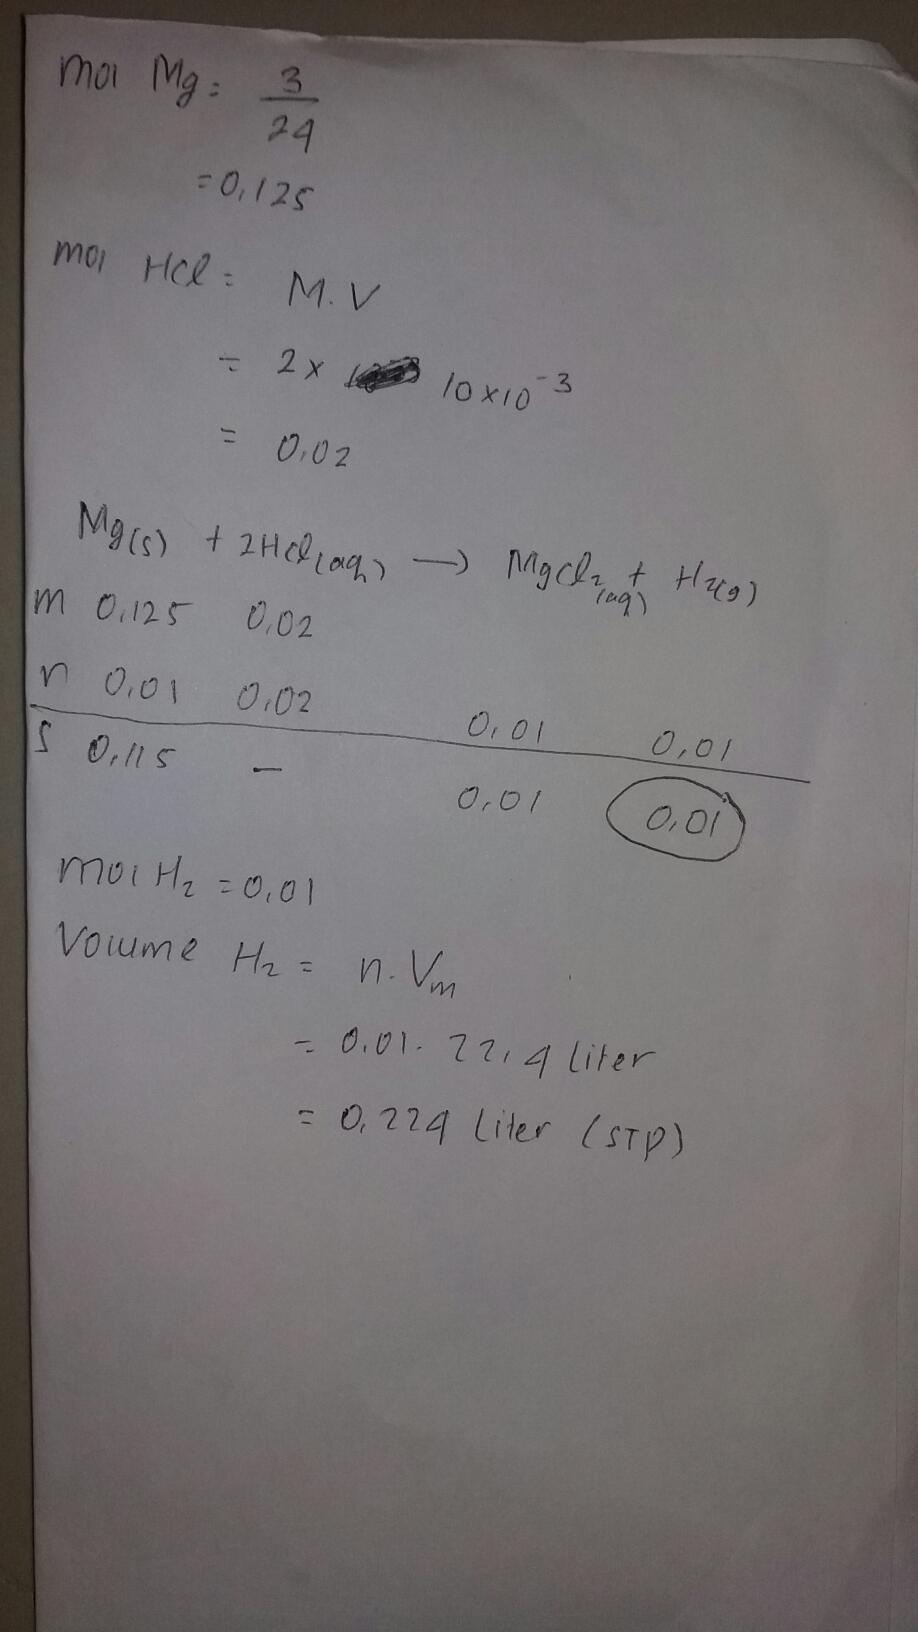 mol Mg = 3/24
= 0,125
mol HCl = M.V
= 2 x 10x10⁻³
= 0,02
Mg(s) + 2HCl(aq) → MgCl₂(aq) + H₂(g)
m 0,125 0,02
r 0,01 0,02 0,01 0,01
s 0,115 - 0,01 0,01
mol H₂ = 0,01
Volume H₂ = n.Vm
= 0,01. 22,4 liter
= 0,224 liter (STP)